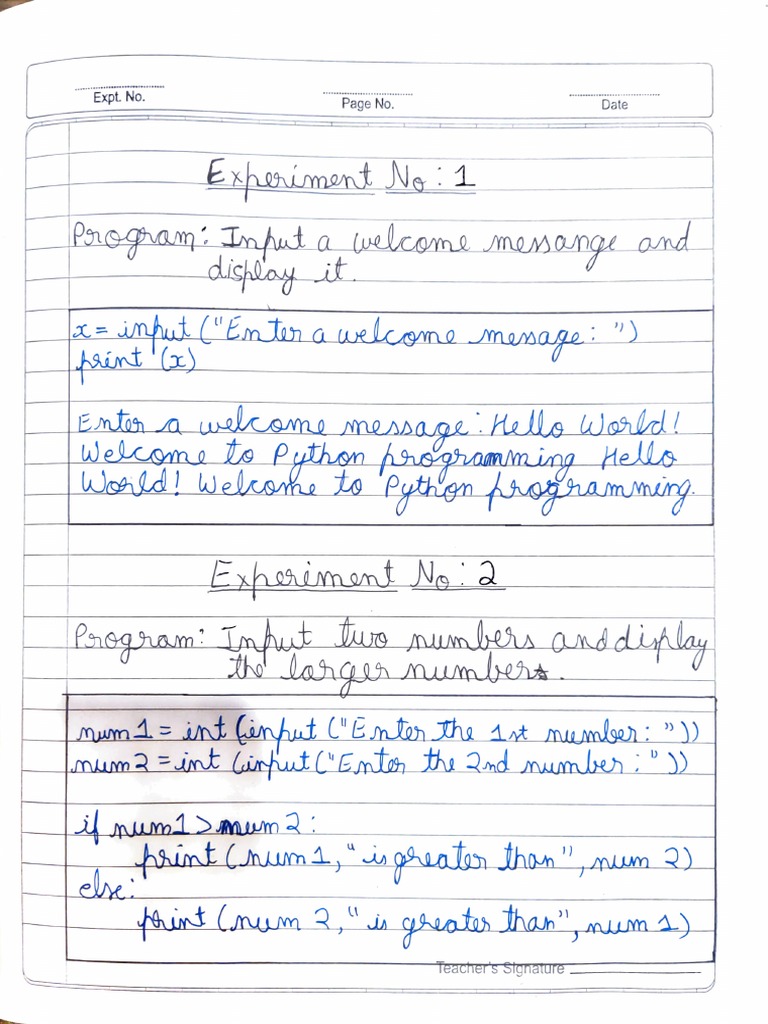 Expt. No.
Page No.
Date
Experiment No: 1
Program: Input a welcome messange and
display it.
x = input ("Enter a welcome message: ")
print (x)
Enter a welcome message: Hello World!
Welcome to Python programming Hello
World! Welcome to Python programming.
Experiment No: 2
Program: Input two numbers and display
the larger number.
num1 = int (input ("Enter the 1st number: "))
num2 = int (input("Enter the 2nd number: " ))
if num1 > num2:
print (num1, "is greater than", num 2)
else:
print (num 2, "is greater than", num 1)
Teacher's Signature